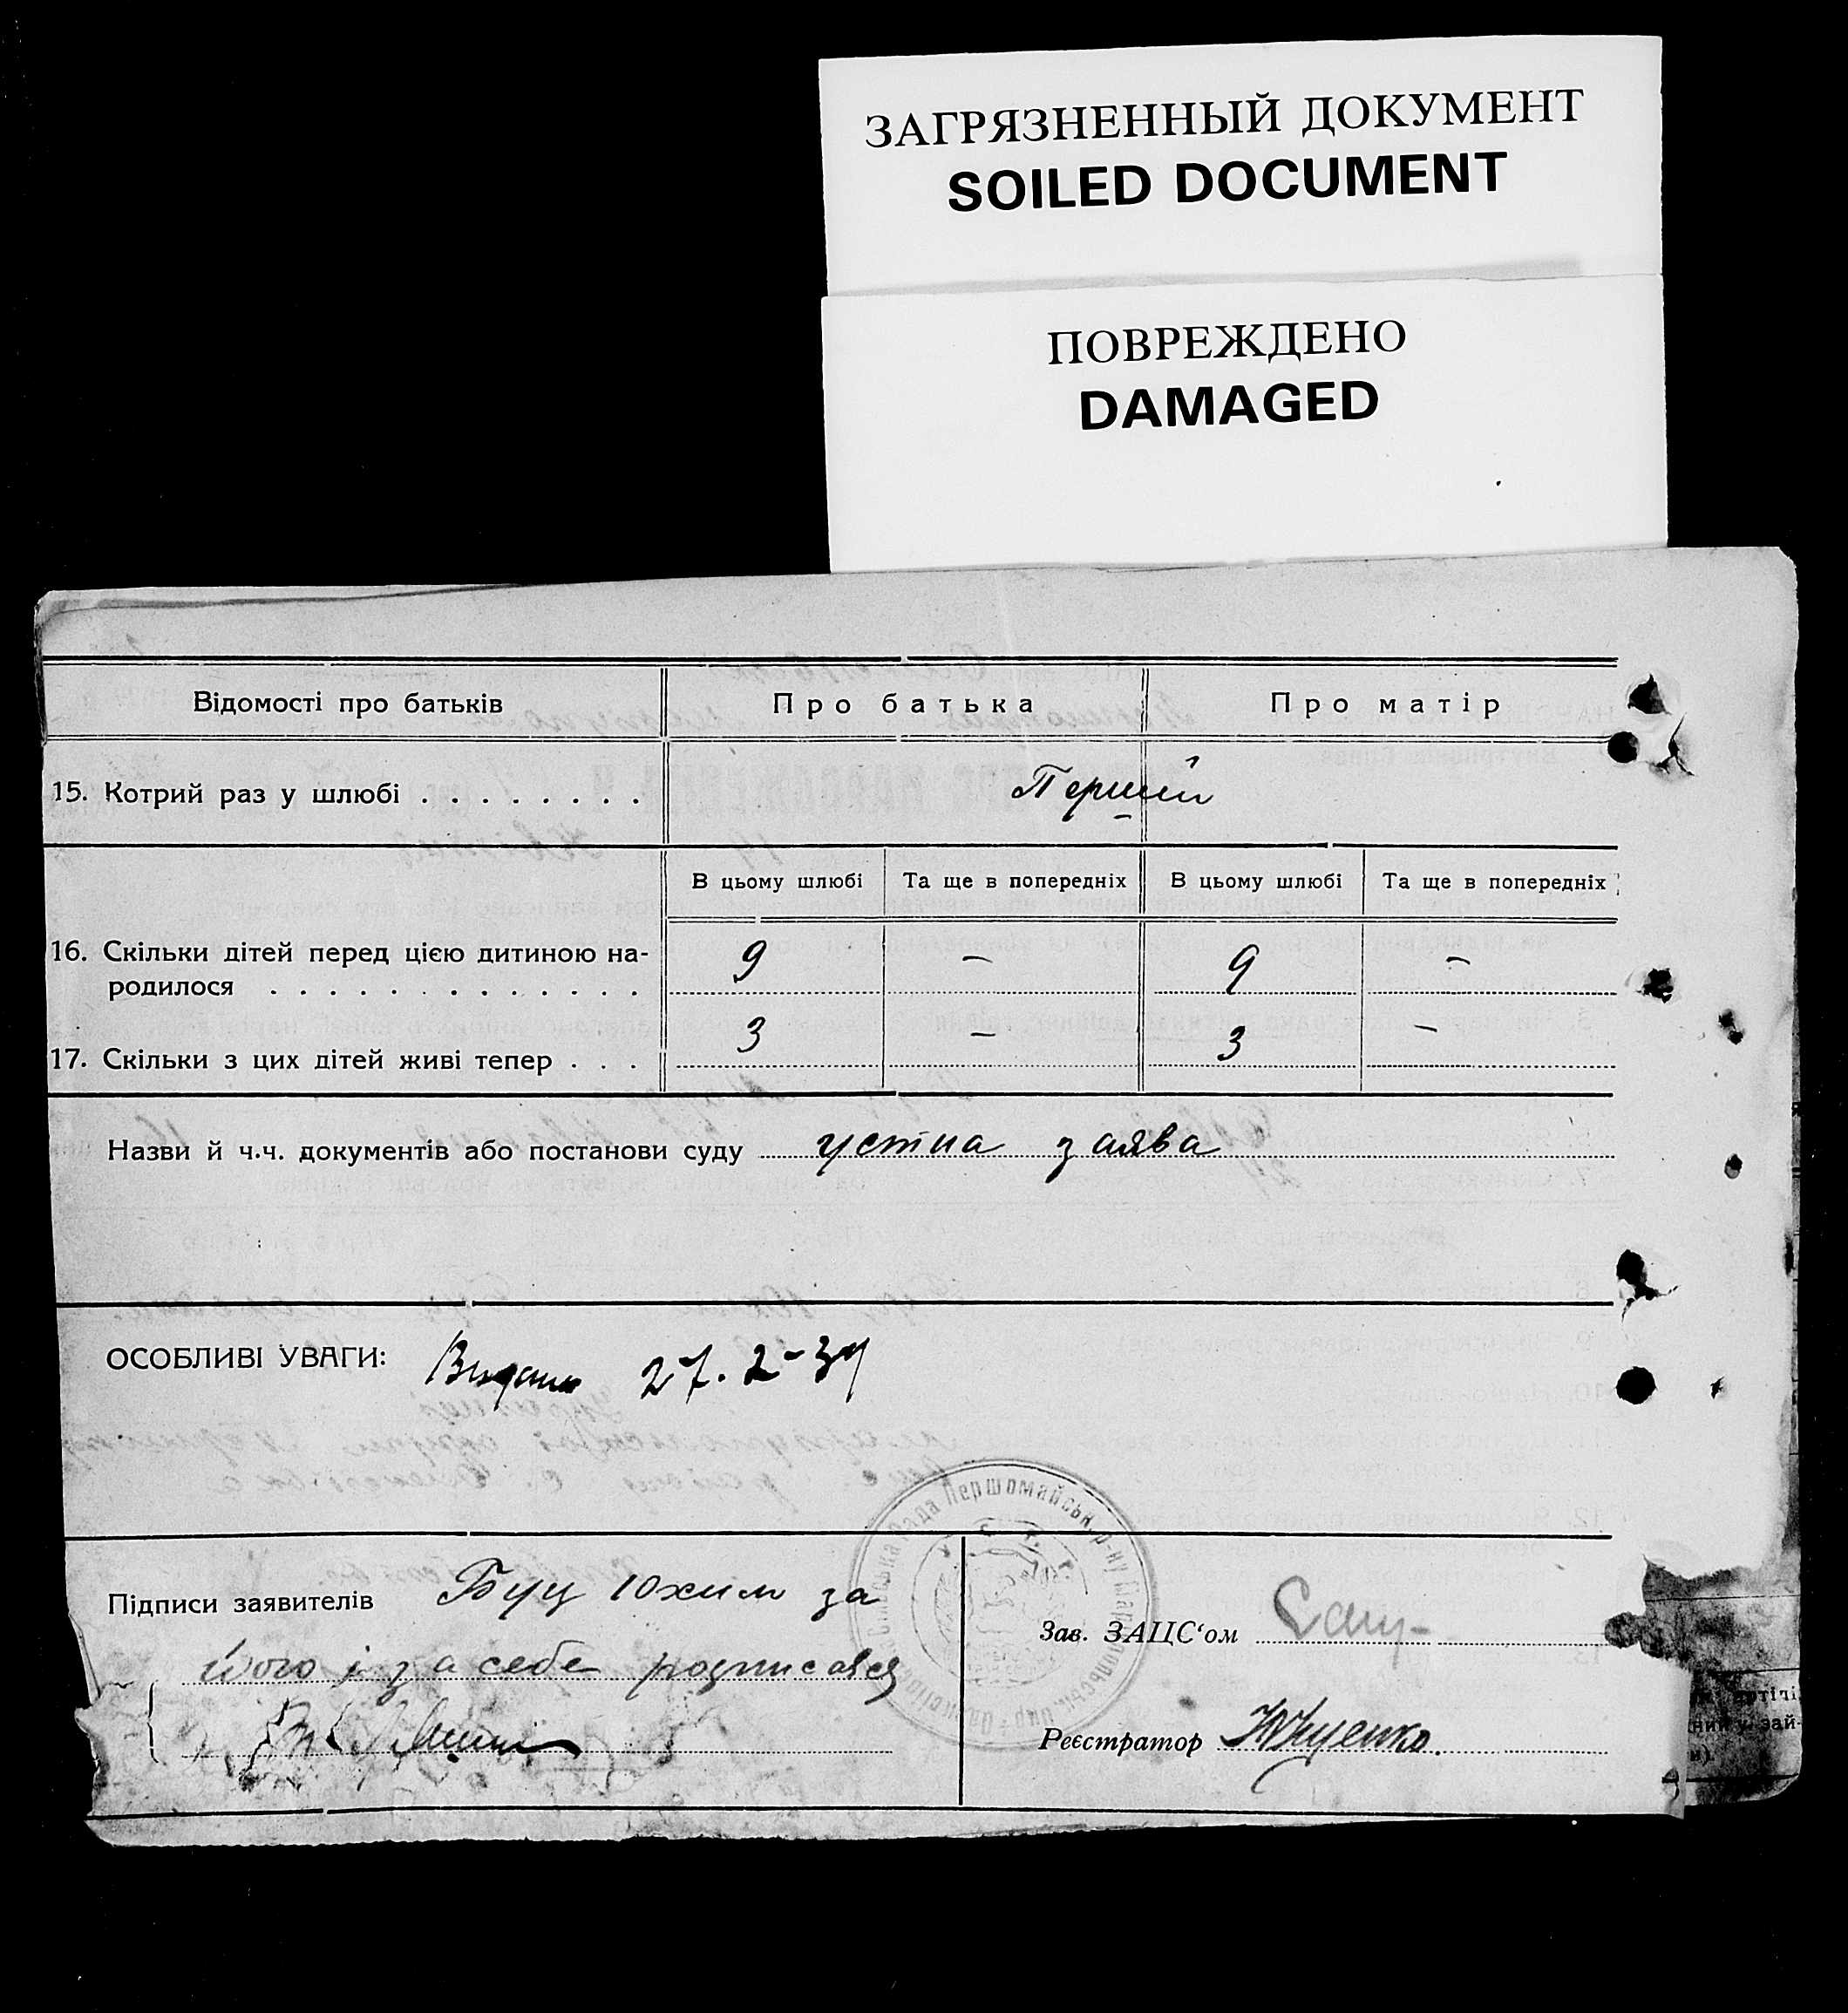 ЗАГРЯЗНЕННЫЙ ДОКУМЕНТ
SOILED DOCUMENT
ПОВРЕЖДЕНО
DAMAGED
Відомості про батьків Про батька Про матір
15. Котрий раз у шлюбі . . . . . . . . Перший
В цьому шлюбі Та ще в попередніх В цьому шлюбі Та ще в попередніх
16. Скільки дітей перед цією дитиною на-
родилося . . . . . . . . . . . . . 9 – 9 –
17. Скільки з цих дітей живі тепер . . . 3 – 3 –
Назви й ч.ч. документів або постанови суду устна заява
ОСОБЛИВІ УВАГИ: Видано 27.2-37
Рада Першомайськ. р-ну
Підписи заявителів Буц Юхим за
його і за себе росписався
Зав. ЗАЦС‘ом
Реєстратор